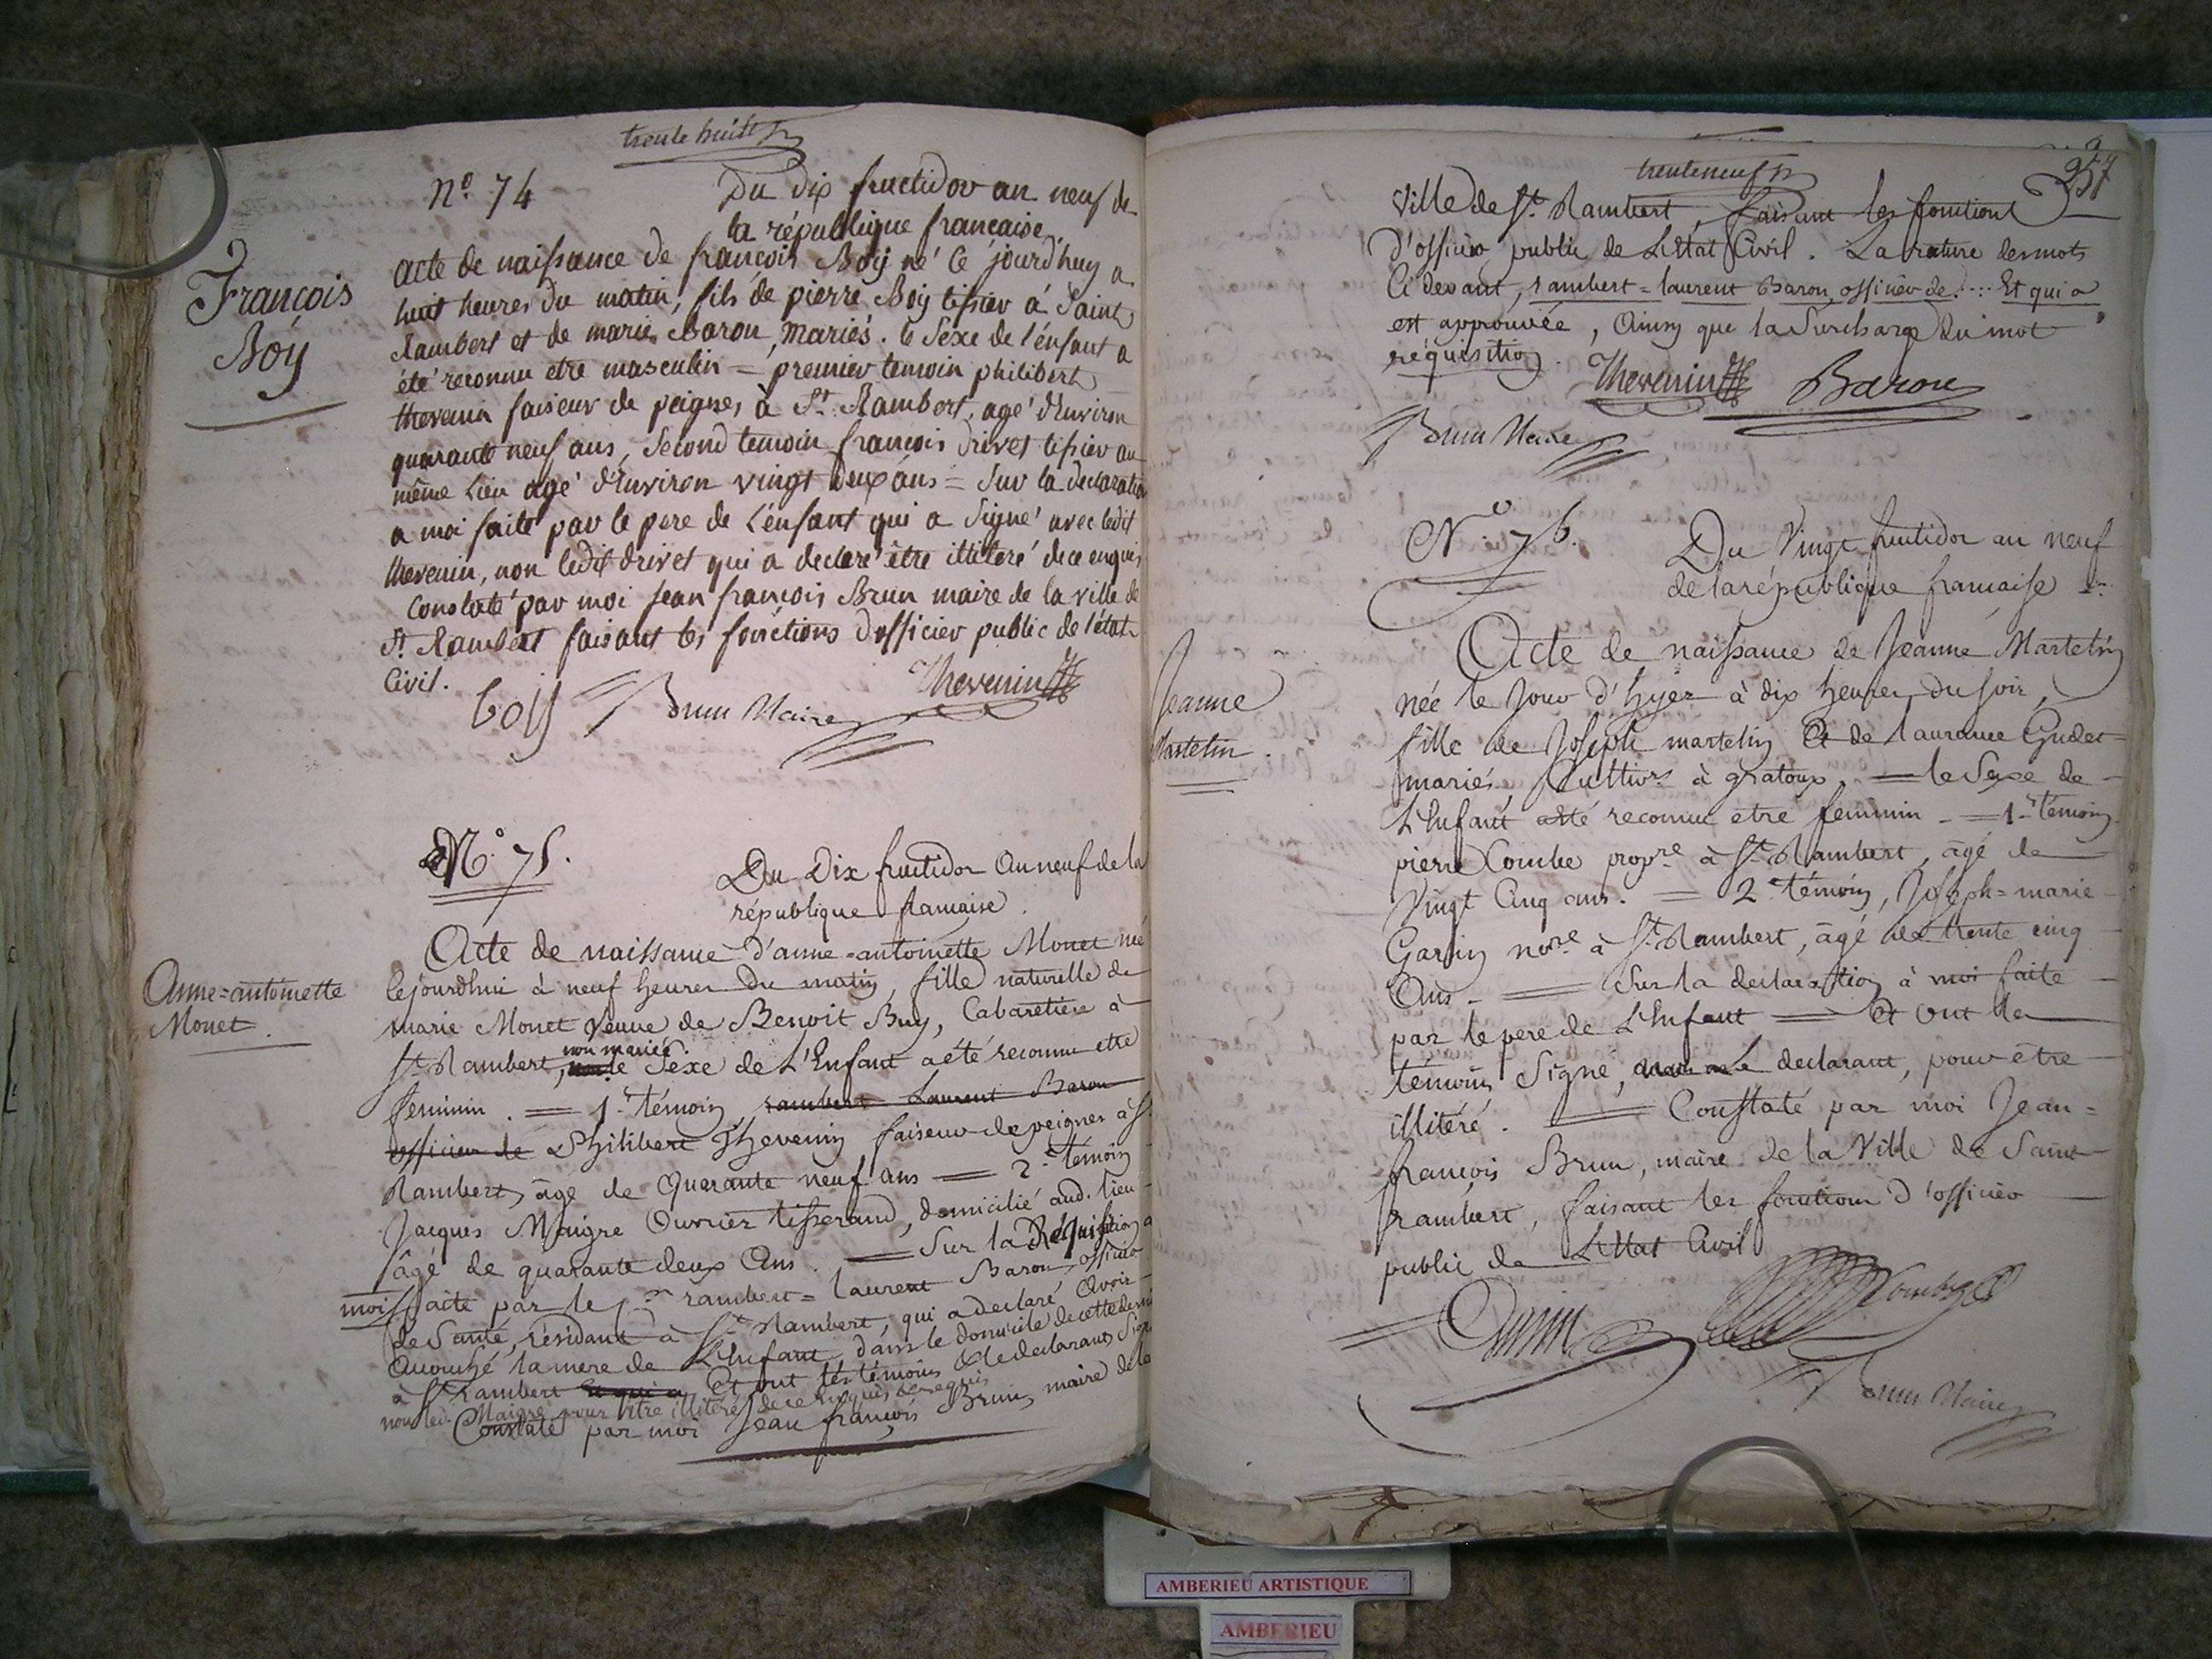 trente huit
N.º 74
Du dix fructidor an neuf de
la république française.
François
Boÿ
acte de naissance de françois Boÿ né ce jourd'huy a
huit heures du matin, fils de pierre Boÿ tissier à Saint
Rambert et de marie Baron, mariés. le Sexe de l'énfant a
été reconnu etre masculin = premier temoin philibert
thevenin faiseur de peignes à St. Rambert, agé d'Environ
quarante neuf ans, Second temoin françois drivet tissier au
même Lieu agé d'Environ vingt deux ans = Sur la declaration
a moi faite par le pere de L'énfant qui a Signé avec ledit
thevenin, non ledit drivet qui a declaré être illiteré de ce enquis
Constaté par moi jean françois Brun maire de la ville de
St. Rambert faisant les fonctions d'officier public de l'état
Civil.
boÿ Brun Maire Thevenin
N.º 75.
Du Dix fructidor an neuf de la
république française.
Anne=antoinette
Monet.
Acte de naissance d'anne=antoinette Monet née
cejourdhui à neuf heures du matin, fille naturelle de
marie Monet Veuve de Benoit Buy, Cabaretière à
non mariée.
St. Rambert, le Sexe de L'Enfant a été reconnu etre
feminin. = 1.r témoin, rambert Laurent Baron
officier de Philibert Thevenin faiseur de peignes à St.
Rambert, âgé de Quarante neuf ans = 2.e témoin
Jacques Maigre Ouvrier tisserand, domicilié aud. lieu
âgé de quarante deux ans. = Sur la Réquisition a
moi faite par le rambert=laurent Baron, officier
de Santé, résidant à St. Rambert, qui a declaré avoir
accouché la mere de L'Enfant, dans le domicile de cette
à St. rambert Et qui a Et ont les témoins & le declarant Signé
non led. Maigre pour être illitéré de ce enquis & requis
Constaté par moi Jean françois Brun, maire de la
trente neuf
257
Ville de St. Rambert, faisant les fonctions
d'officier public de L'Etat Civil. La rature des mots
Ci devant, rambert=laurent Baron, officier de.... Et qui a
est approuvée, Ainsy que la Surcharge du mot
réquisition.
Thevenin Baron
Brun Maire
N.º 76.
Du Vingt fructidor an neuf
de la république française
Jeanne
Martelin.
Acte de naissance de Jeanne Martelin
née le jour d'hyer à dix heures du soir,
fille de Joseph martelin Et de laurance Gudet
mariés, Cultivrs à gratoux, = le Sexe de
L'Enfant a été reconnu etre feminin = 1.r témoin
pierre Combe propre à St. Rambert, âgé de
Vingt Cinq ans. = 2.e témoin, Joseph=marie
Garin nore à St. Rambert, âgé de trente cinq
Ans = Sur la declaration à moi faite
par le pere de L'Enfant = Et ont les
témoins Signé, le declarant, pour être
illitéré. = Constaté par moi Jean=
françois Brun, maire de la Ville de Saint
rambert, faisant les fonctions d'officier
public de L'Etat Civil
Garin Combe
Brun Maire
AMBERIEU ARTISTIQUE
AMBERIEU